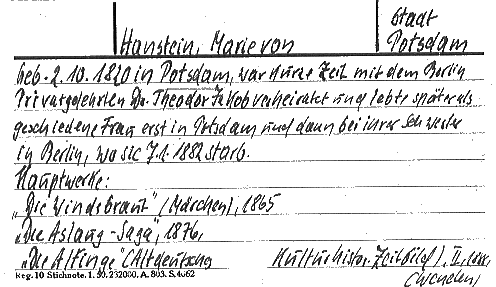 Stadt
Hanstein, Marie von Potsdam
geb. 2. 10. 1820 in Potsdam, war kurze Zeit mit dem Berlin
Privatgelehrten Dr. Theodor Jakob verheiratet und lebte später als
geschiedene Frau erst in Potsdam und dann bei ihrer Schwester
in Berlin, wo sie 7.1. 1882 starb.
Hauptwerke:
"Die Windsbraut" (Märchen), 1865
"Die Aslaug-Saga", 1876,
"Die Alfinge" (Altdeutsch Kulturhistor. Zeitbild), II,
Reg. 10 Stichnote. 1. 50. 232000. A. 803. S. 4062 (wenden)